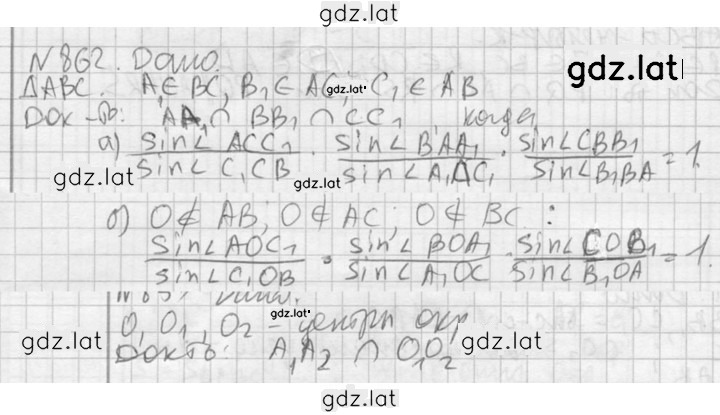 gdz.lat
N 862. Дано.
ΔABC. A₁∈ BC, B₁∈ AC, C₁ ∈ AB
gdz.lat
gdz.lat
Док-ть: AA₁ ∩ BB₁ ∩ CC₁, когда
а) sin∠ ACC₁ / sin∠ C₁CB · sin∠ BAA₁ / sin∠ A₁AC · sin∠CBB₁ / sin∠B₁BA = 1.
gdz.lat
gdz.lat
gdz.lat
б) O∉ AB; O∉ AC; O∉ BC :
sin∠AOC₁ / sin∠C₁OB · sin∠ BOA₁ / sin∠ A₁OC · sin∠COB₁ / sin∠B₁OA = 1.
gdz.lat
gdz.lat
O, O₁, O₂ - центры окр
gdz.lat
Док-ть: A₁A₂ ∩ O₁O₂
gdz.lat
gdz.lat